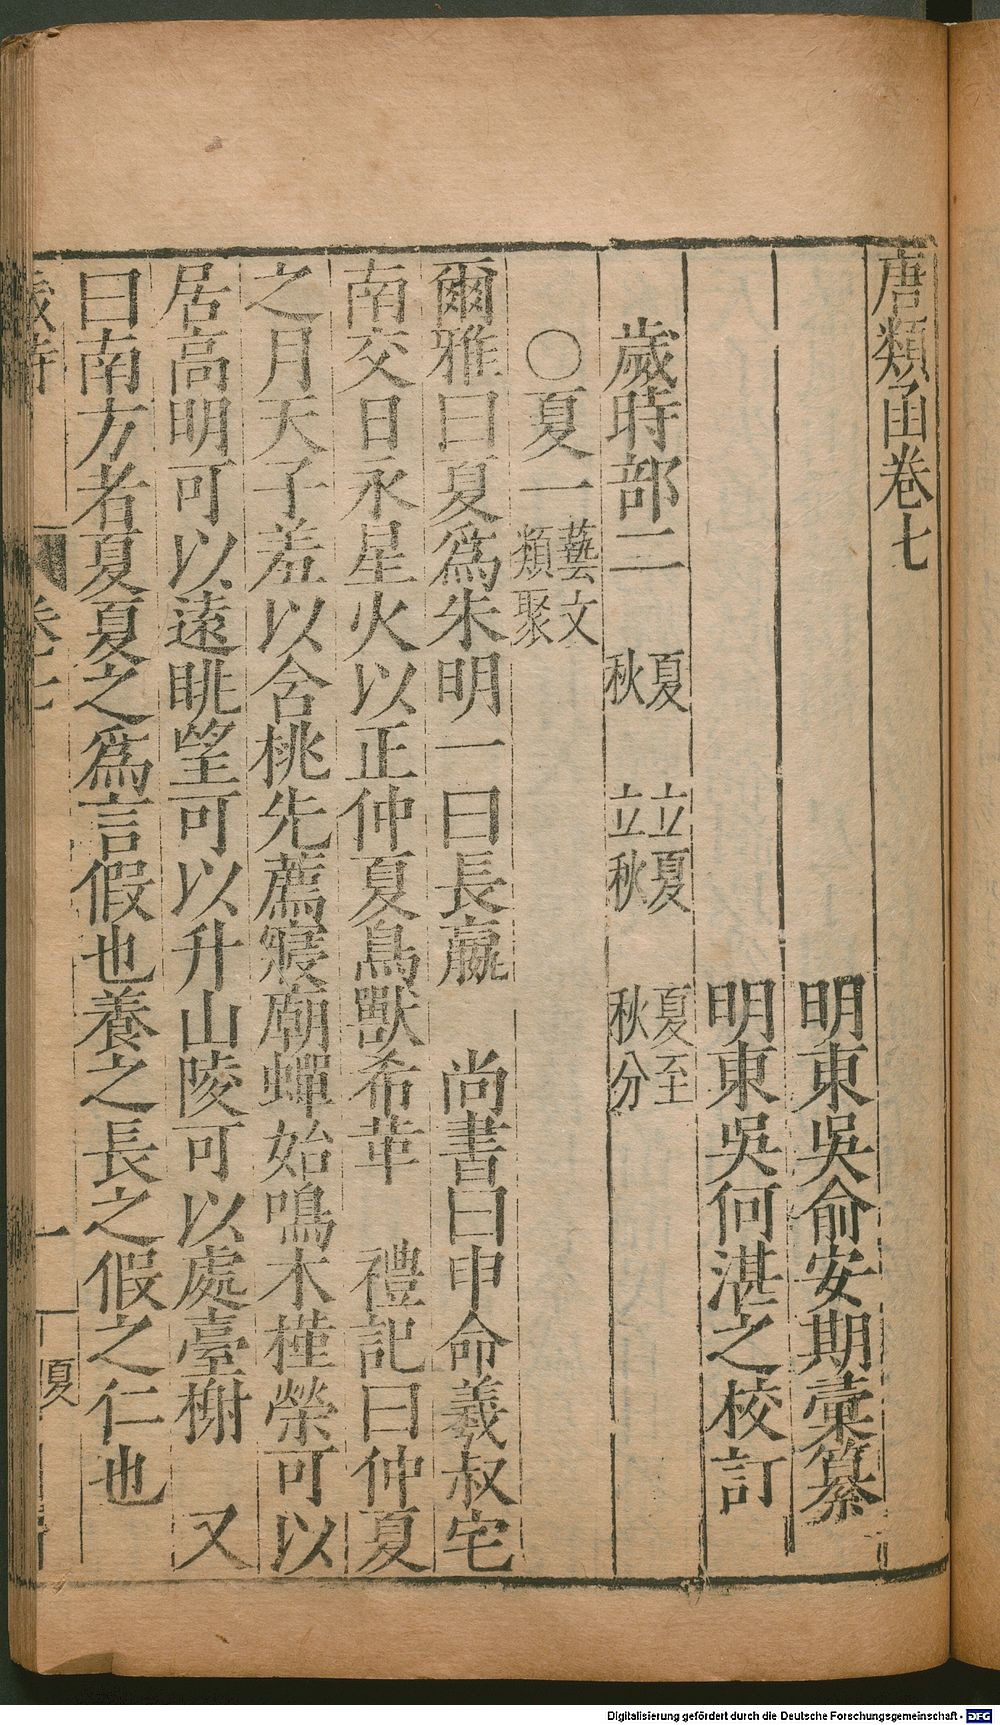 唐類函卷七
明東吳俞安期彙纂
明東吳何湛之校訂
歲時部二 夏 秋 立夏 立秋 夏至 秋分
○夏一 藝文類聚
爾雅曰夏爲朱明一曰長嬴 尚書曰申命羲叔宅
南交日永星火以正仲夏鳥獸希革 禮記曰仲夏
之月天子羞以含桃先薦寢廟蟬始鳴木槿榮可以
居高明可以遠眺望可以升山陵可以處臺榭 又
曰南方者夏夏之爲言假也養之長之假之仁也
歲時 卷七 一 夏
Digitalisierung gefördert durch die Deutsche Forschungsgemeinschaft - DFG